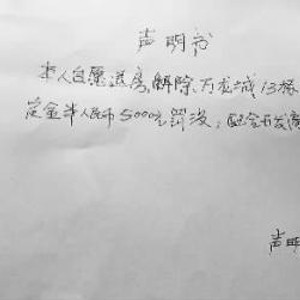 声明书
本人自愿退房,解除万龙城13栋
定金半人民币5000元罚没,配合开发
声明